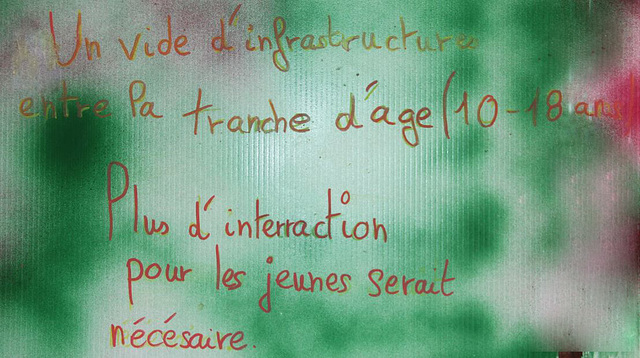 Un vide d'infrastructure
entre la tranche d'âge (10-18 ans
Plus d'interraction
pour les jeunes serait
nécésaire.